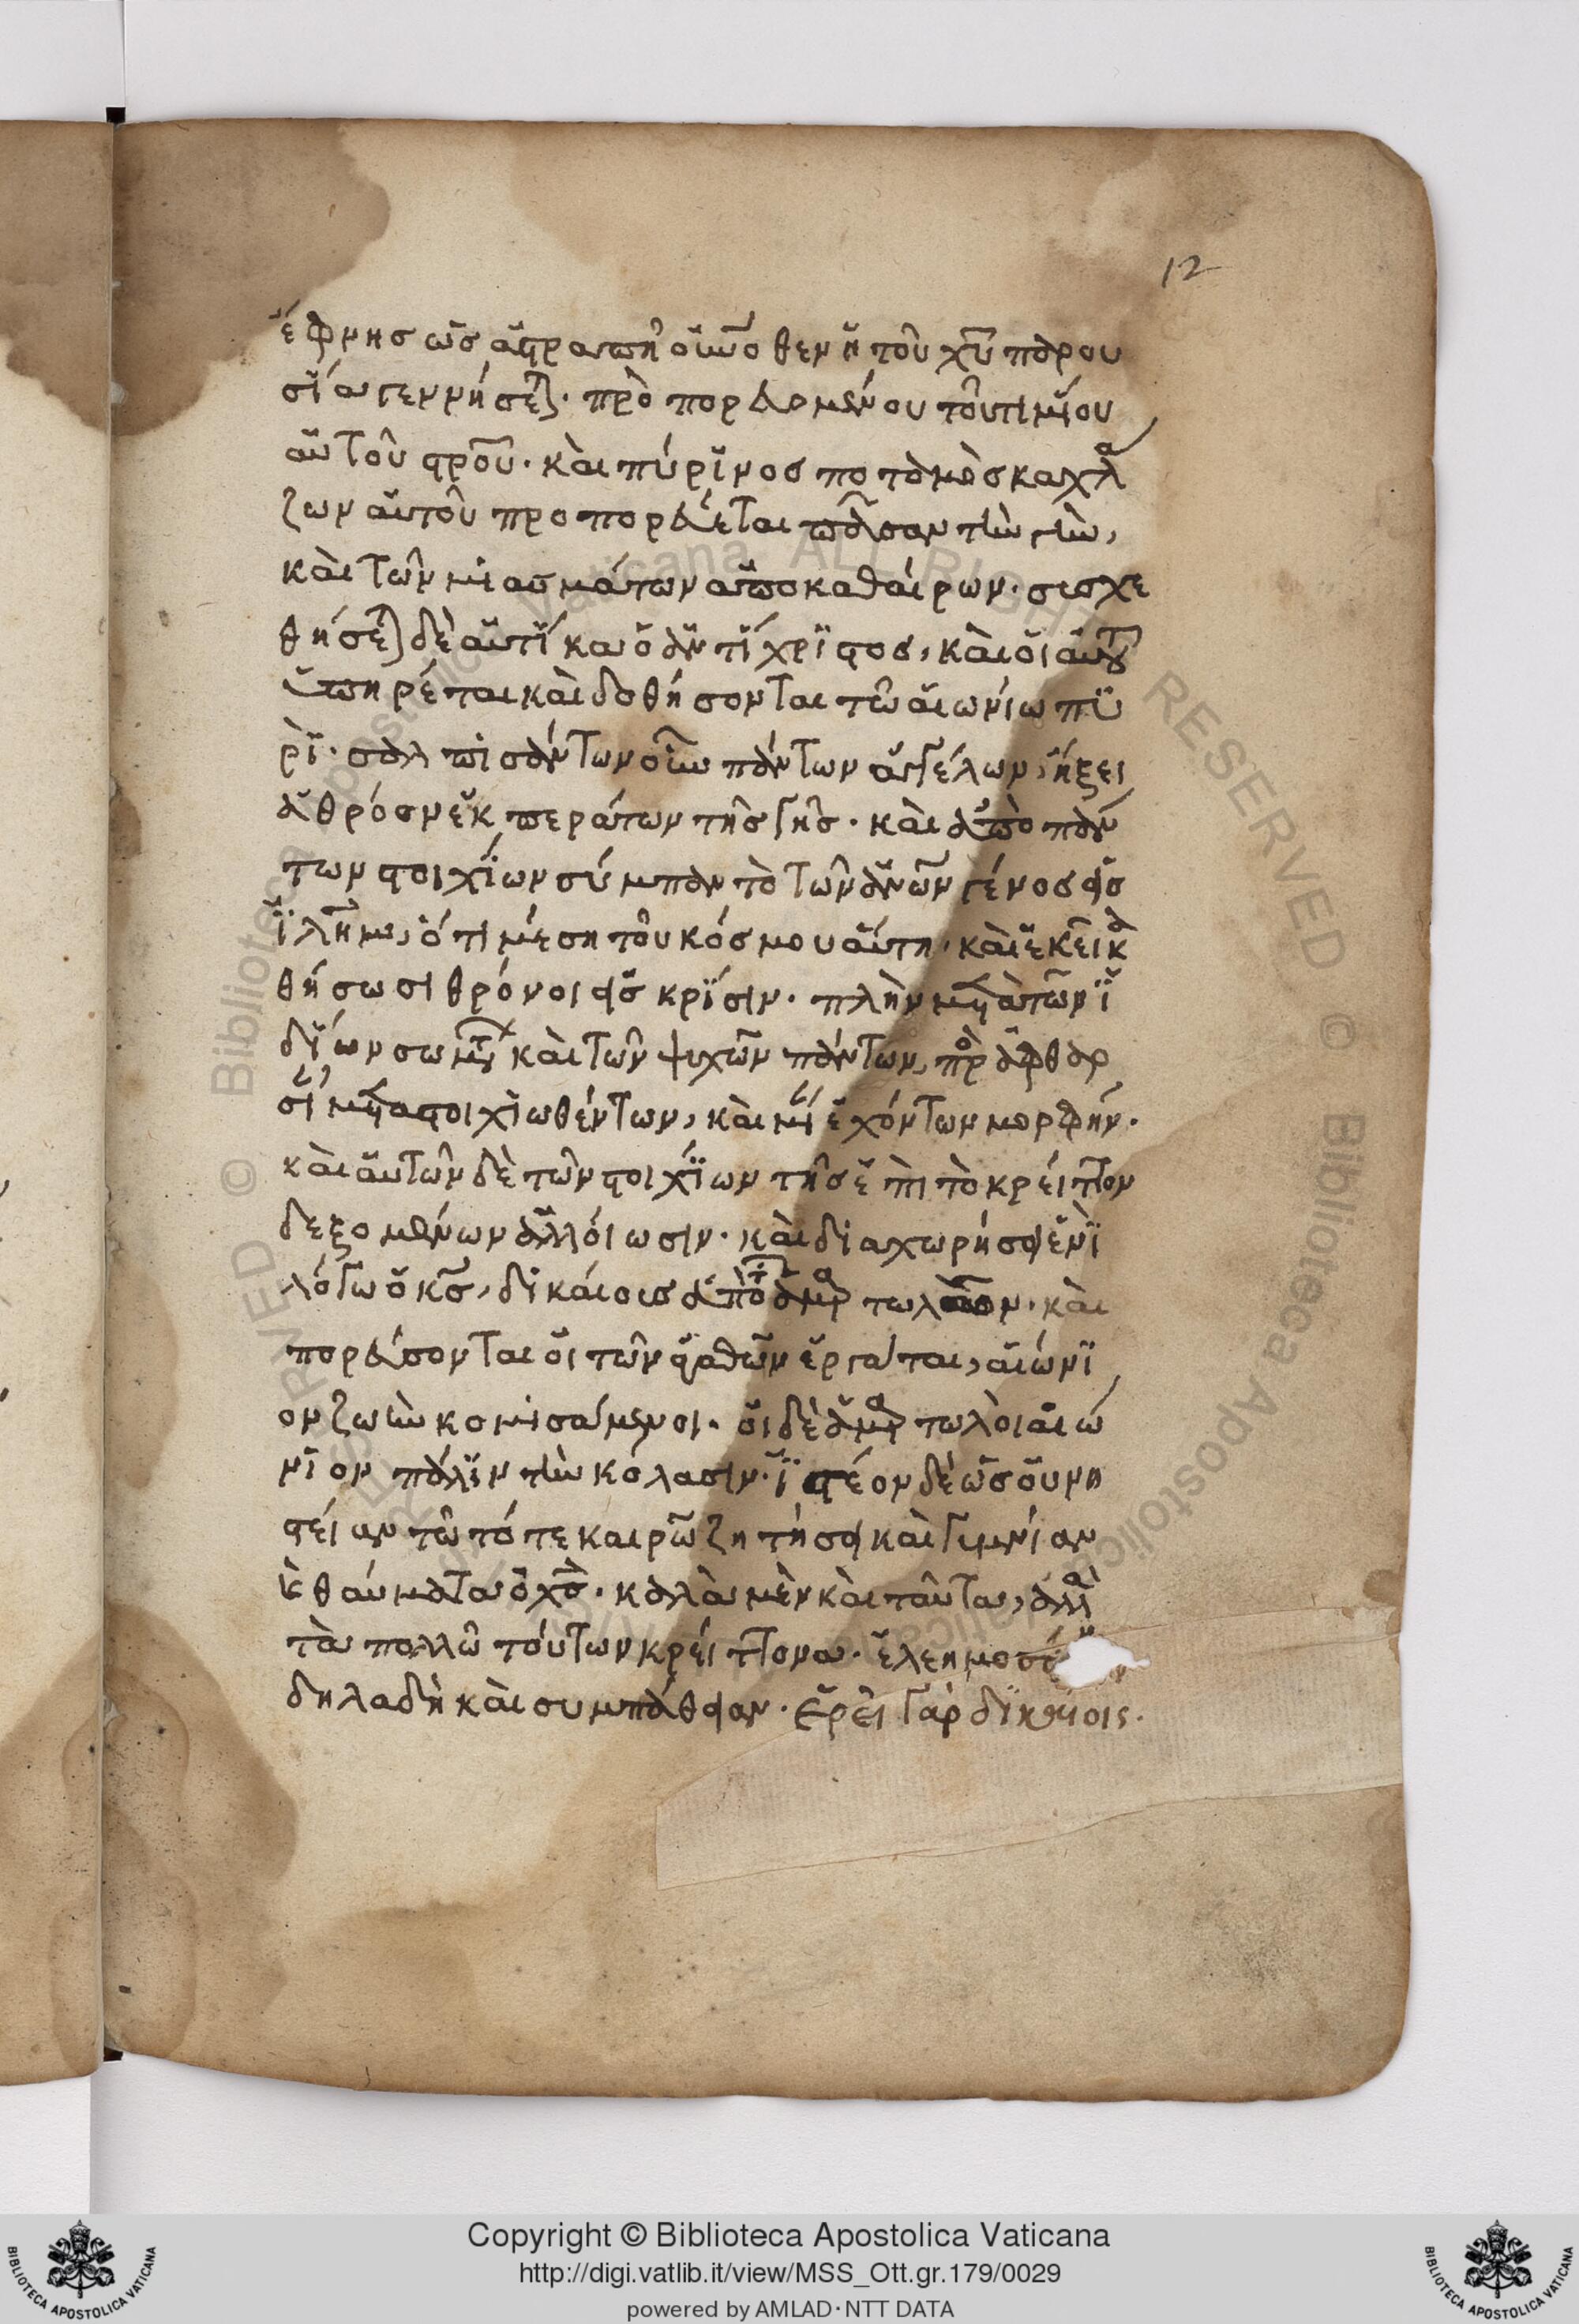 12
ἔφνης ὡς ἀστραπὴ οὐνόθεν ἡ τοῦ χυ παρου
σία γεννήσεται· πρὸ πορευομένου τοῦ τιμίου
αὐτοῦ στροῦ· καὶ πύρινος ποταμὸς καχλά
ζων αὐτοῦ προπορεύεται πᾶσαν τὴν γῆν,
καὶ τῶν μιασμάτων ἀποκαθαίρων· συσχε
θήσεται δὲ αὐτίκα ὁ ἀντίχριστος, καὶ οἱ αὐτοῦ
ὑπηρέται καὶ δοθήσονται τῶ αἰωνίω πυ
ρὶ· σαλπισάντων οὖν πάντων ἀγγέλων, ἥξει
ἀθρόον ἐκ περάτων τῆς γῆς· καὶ ἀπὸ πάν
των στοιχίων σύμπαν τὸ τῶν ἀνων γένος εἰς
ἰλημ, ὅτι μέση τοῦ κόσμου αὕτη· καὶ ἐκεῖ κα
θήσωσι θρόνοι εἰς κρίσιν· πλὴν μετὰ τῶν ἰ
δίων σωμάτων καὶ τῶν ψυχῶν πάντων, πρὸς ἀφθαρ
σί μεταστοιχιωθέντων, καὶ μί ἐχόντων μορφήν·
καὶ αὐτῶν δὲ τῶν στοιχίων τῆς ἐπὶ τὸ κρεῖττον
δεξομένων ἀλλοίωσιν· καὶ διαχωρήσει ἑνὶ
λόγω ὁ κς, δικαίους ἀπὸ ἁμαρτωλῶν· καὶ
πορεύσονται οἱ τῶν ἀγαθῶν ἐργάται, αἰώνι
ον ζωὴν κομισάμενοι· οἱ δὲ ἁμαρτωλοὶ αἰώ
νιον πάλιν τὴν κόλασιν· ἰστέον δὲ ὡς οὐ νη
στείαν τῶ τότε καιρῶ ζητήσει καὶ γυμνίαν
κ θαύματα ὁ χς· καλὰ μὲν καὶ ταῦτα, ἀλλὰ
τὰ πολλῶ τούτων κρείττονα· ἐλεημοσύ
δηλαδὴ καὶ συμπάθειαν· ἐρεῖ γὰρ δικαίοις·
Copyright © Biblioteca Apostolica Vaticana
http://digi.vatlib.it/view/MSS_Ott.gr.179/0029
powered by AMLAD·NTT DATA
BIBLIOTECA APOSTOLICA VATICANA
BIBLIOTECA APOSTOLICA VATICANA